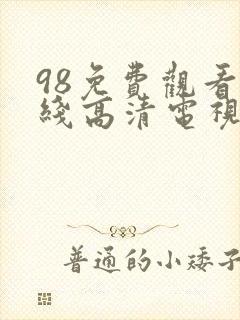 98免費觀看
綫高清電視
普通的小矮子